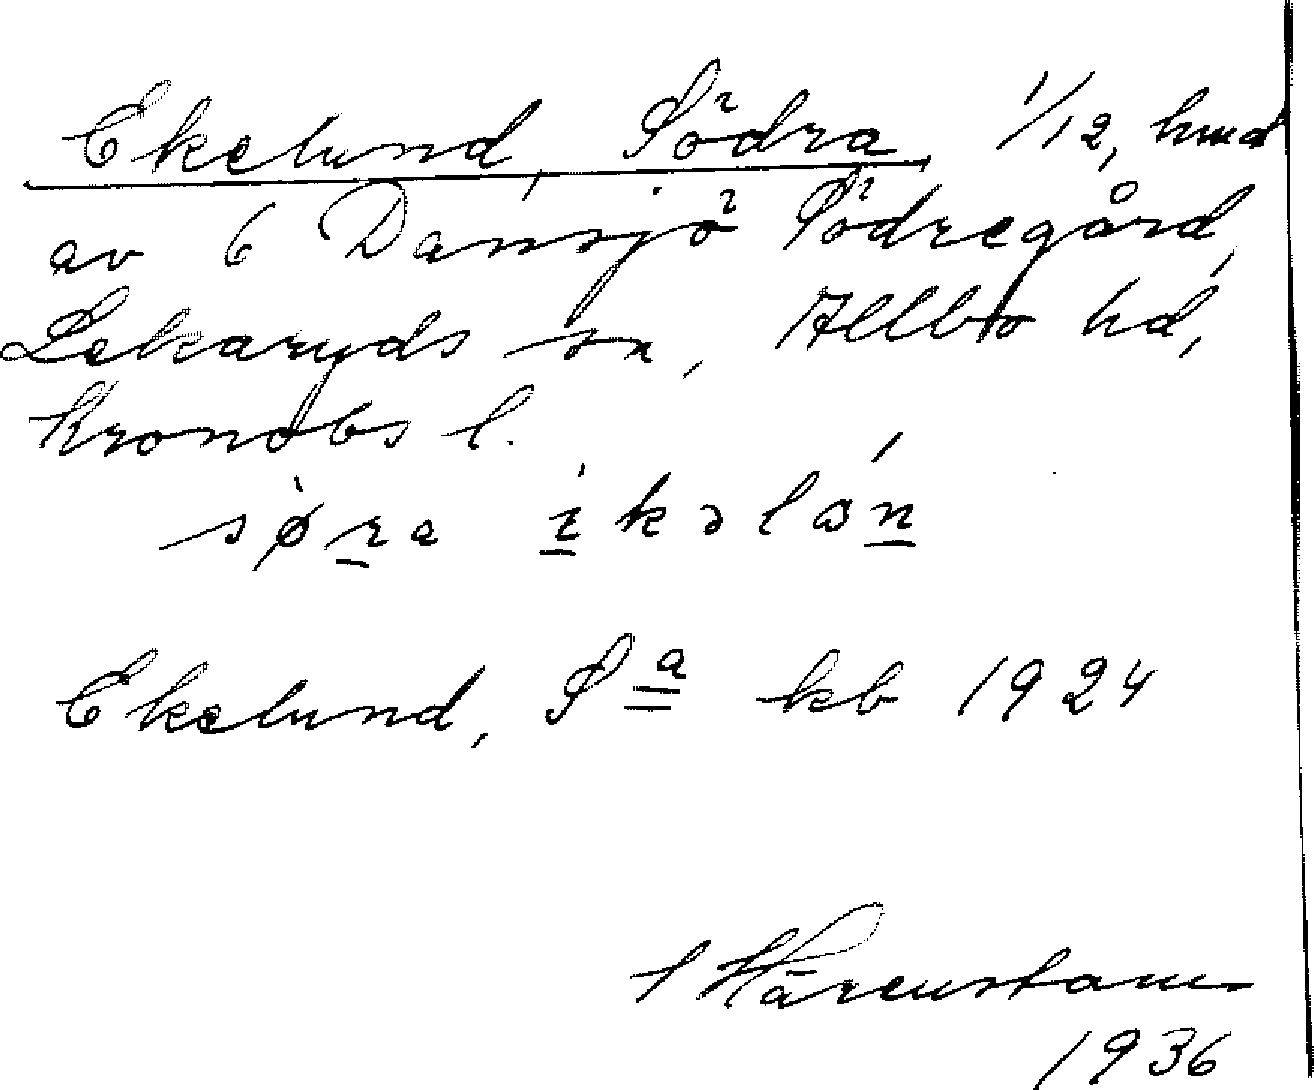 Ekelund, Södra, 1/12, hmd
av 6 Dansjö Södregård,
Lekaryds sn, Allbo hd,
Kronobs l.
sø̀ra ikəlán
Ekelund, S a kb 1924
Härenstam
1936